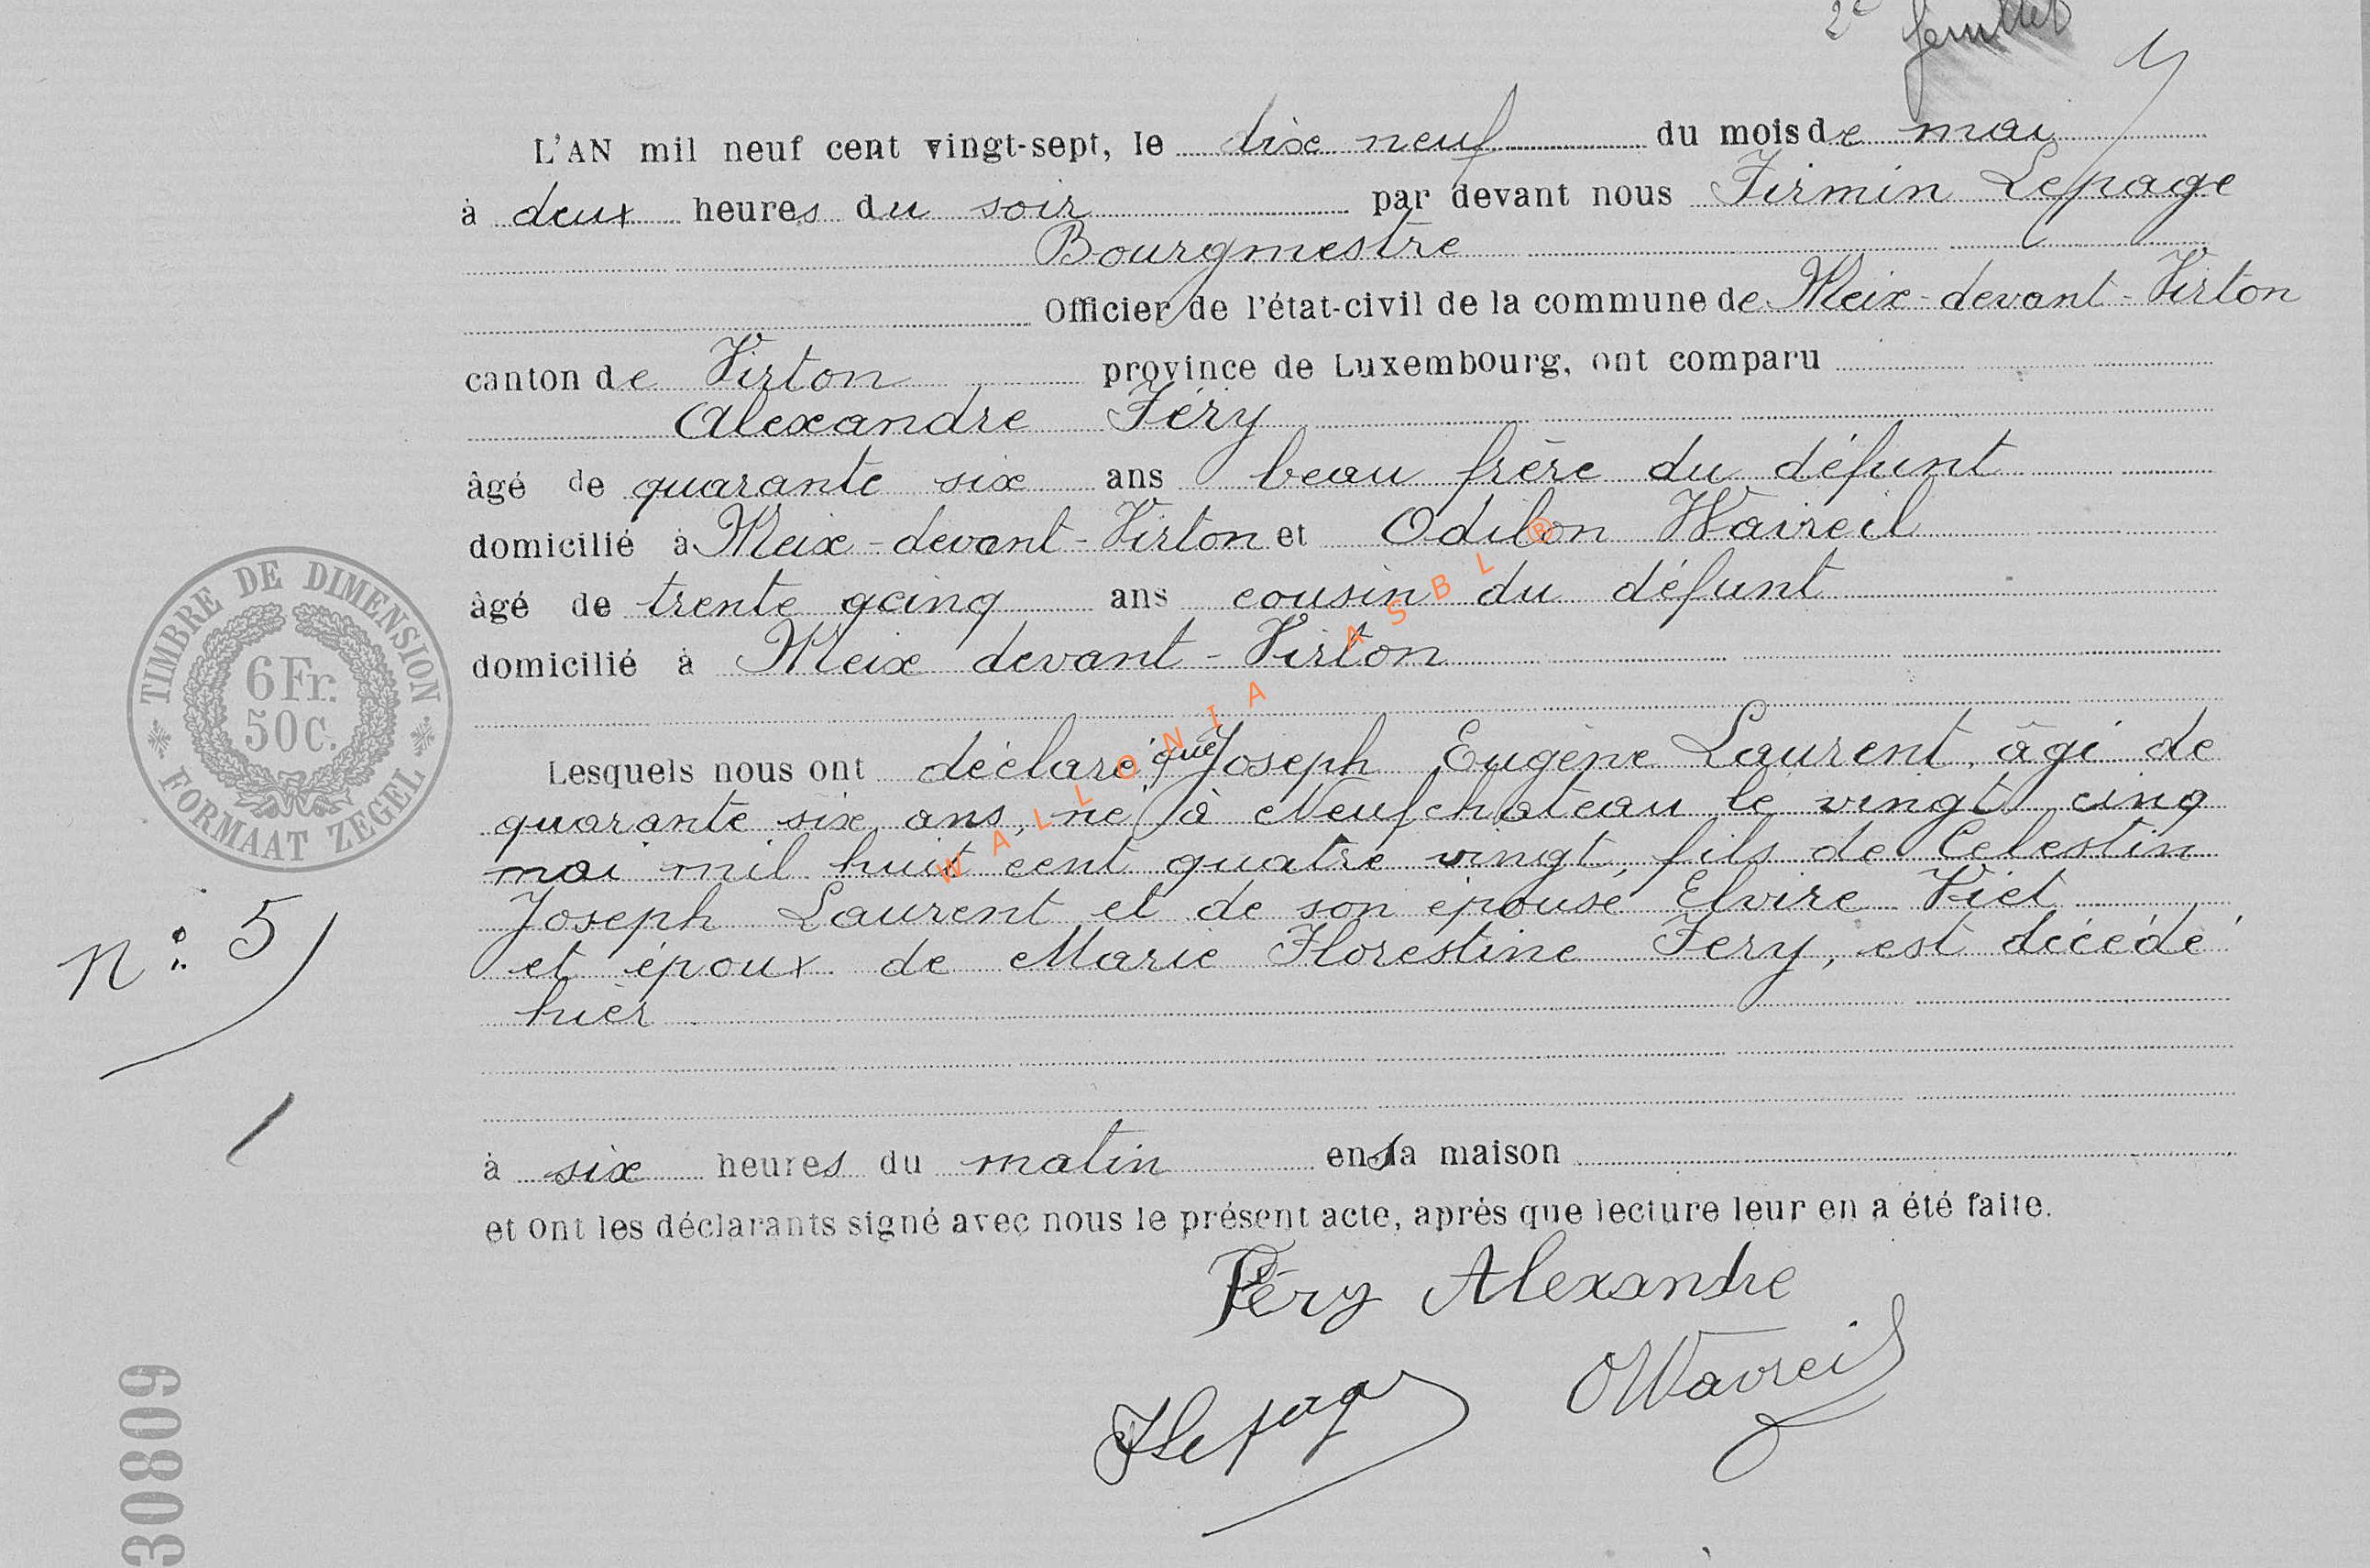 2e feuillet
L'AN mil neuf cent vingt-sept, le dixe neuf du mois de mai
à deux heures du soir par devant nous Firmin Lepage
Bourgmestre
Officier de l'état-civil de la commune de Meix-devant-Virton
canton de Virton province de Luxembourg, ont comparu
Alexandre Féry
âgé de quarante six ans beau frère du défunt
domicilié à Meix-devant-Virton et Odilon Wavreil
âgé de trente qcinq ans cousin du défunt
domicilié à Meix devant-Virton
Lesquels nous ont déclaré que Joseph Eugène Laurent, âgé de
quarante six ans, né à Neufchâteau le vingt cinq
mai mil huit cent quatre vingt, fils de Célestin
Joseph Laurent et de son épouse Elvire Viet
et époux de Marie Florestine Fery, est décédé
hier
à six heures du matin en sa maison
et ont les déclarants signé avec nous le présent acte, après que lecture leur en a été faite.
Féry Alexandre
OWavreil
FLepage
TIMBRE DE DIMENSION
6 Fr.
50 c.
FORMAAT ZEGEL
No 5
30809
WALLONIA ASBL ®